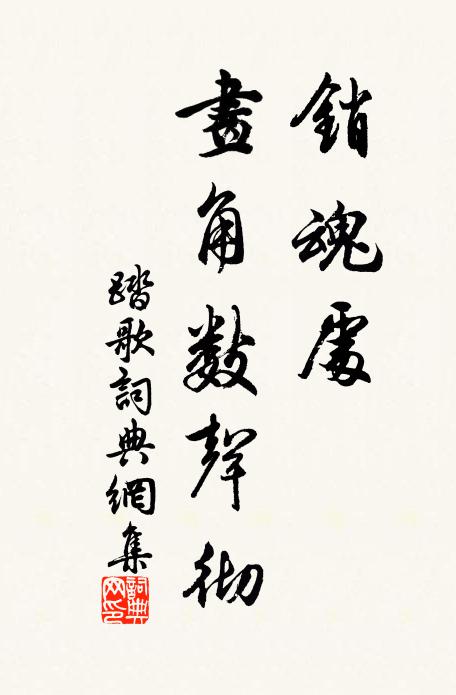 銷魂處
畫角數聲彻
踏歌詞典網集
詞典
网印